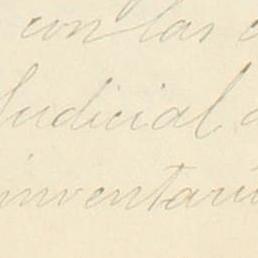 con las
Judicial
inventari